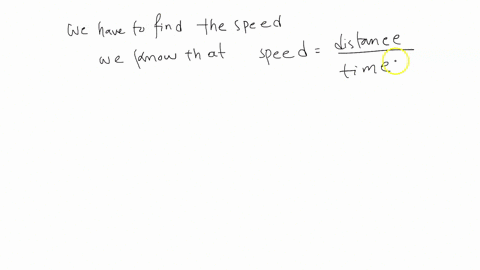 we have to find the speed
we know that speed = distance / time